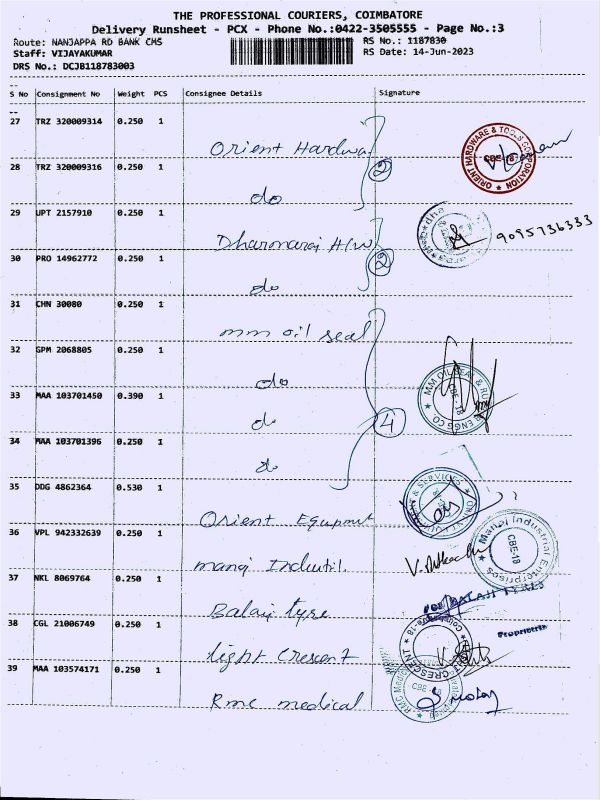 THE PROFESSIONAL COURIERS, COIMBATORE
Delivery Runsheet - PCX - Phone No.:0422-3505555 - Page No.:3
Route: NANJAPPA RD BANK CMS RS No.: 1187830
Staff: VIJAYAKUMAR RS Date: 14-Jun-2023
DRS No.: DCJB118783003
S No Consignment No Weight PCS Consignee Details Signature
27 TRZ 320009314 0.250 1
Orient Hardwa
ORIENT HARDWARE & TOOLS CORPORATION CBE-18
28 TRZ 320009316 0.250 1
do
2
29 UPT 2157910 0.250 1
Dharmaraj H/W
9095736333
30 PRO 14962772 0.250 1
do
2
31 CHN 30080 0.250 1
mm oil seal
32 GPM 2068805 0.250 1
do
33 MAA 103701450 0.390 1
do
4
MM OIL SEAL & ENGG CO. CBE-18
34 MAA 103701396 0.250 1
do
35 DDG 4862364 0.530 1
Orient Equpmut
& SERVICES
36 VPL 942332639 0.250 1
manoj Industil.
Manoj Industrial Enterprises CBE-18
37 NKL 8069764 0.250 1
Balaji tyre
For BALAJI TYRES
Proprietrix
38 CGL 21006749 0.250 1
light Crescent
CRESCENT
39 MAA 103574171 0.250 1
Rmc medical
RMC Medic CBE-18